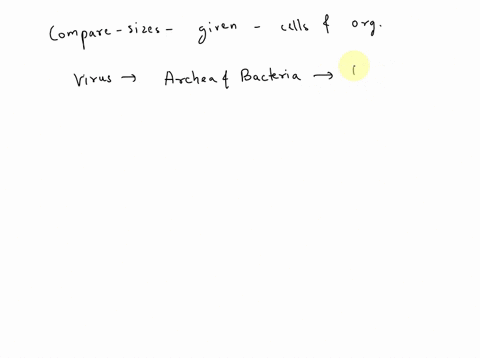 Compare - sizes - given - cells & org.
Virus → Archea & Bacteria →